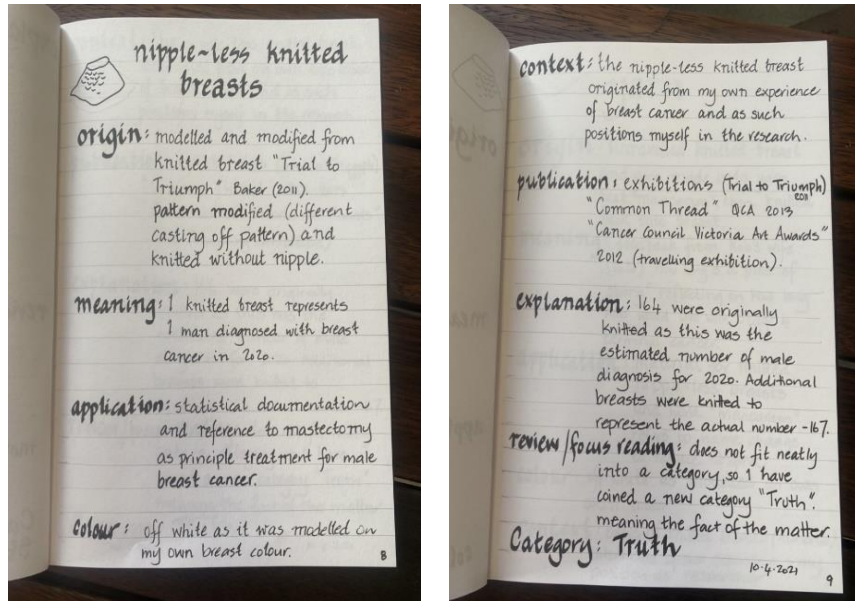 nipple-less knitted
breasts
origin: modelled and modified from
knitted breast "Trial to
Triumph" Baker (2011).
pattern modified (different
casting off pattern) and
knitted without nipple.
meaning: 1 knitted breast represents
1 man diagnosed with breast
cancer in 2020.
application: statistical documentation
and reference to mastectomy
as principle treatment for male
breast cancer.
colour: off white as it was modelled on
my own breast colour.
8
context: the nipple-less knitted breast
originated from my own experience
of breast cancer and as such
positions myself in the research.
publication: exhibitions (Trial to Triumph)
2011
"Common Thread" QCA 2013
"Cancer Council Victoria Art Awards"
2012 (travelling exhibition).
explanation: 164 were originally
knitted as this was the
estimated number of male
diagnosis for 2020. Additional
breasts were knitted to
represent the actual number -167.
review/focus reading: does not fit neatly
into a category, so I have
coined a new category "Truth".
meaning the fact of the matter.
Category: Truth
10-4-2021
9